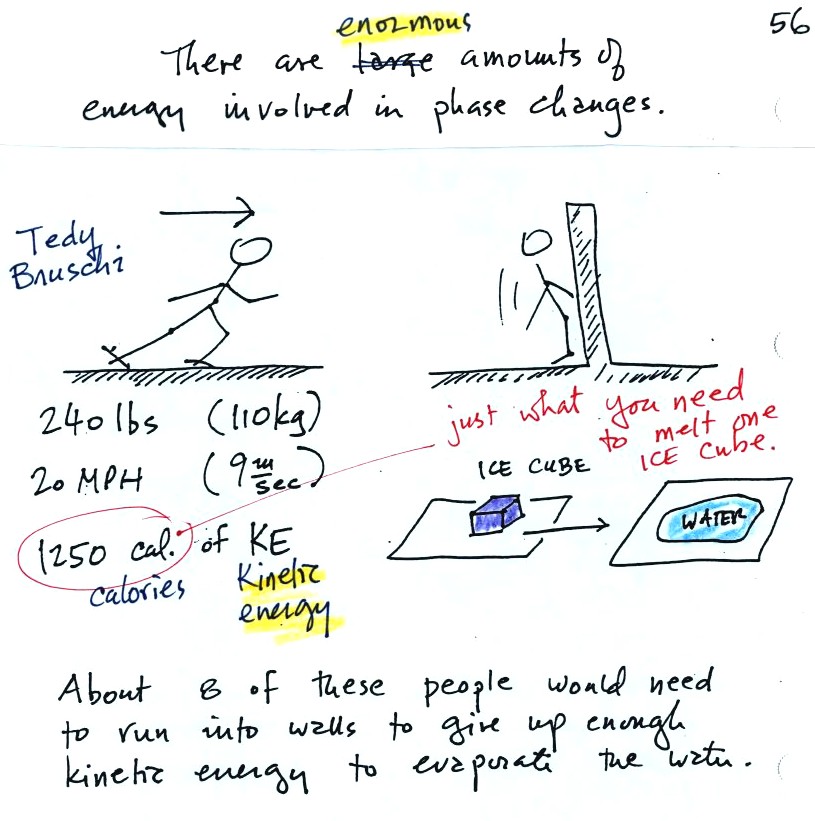 56
enormous
There are large amounts of
energy involved in phase changes.
Tedy
Bruschi
240 lbs (110kg)
20 MPH (9 m/sec)
1250 cal. of KE
calories
Kinetic
energy
just what you need
to melt one
ICE Cube.
ICE CUBE
WATER
About 8 of these people would need
to run into walls to give up enough
kinetic energy to evaporate the water.